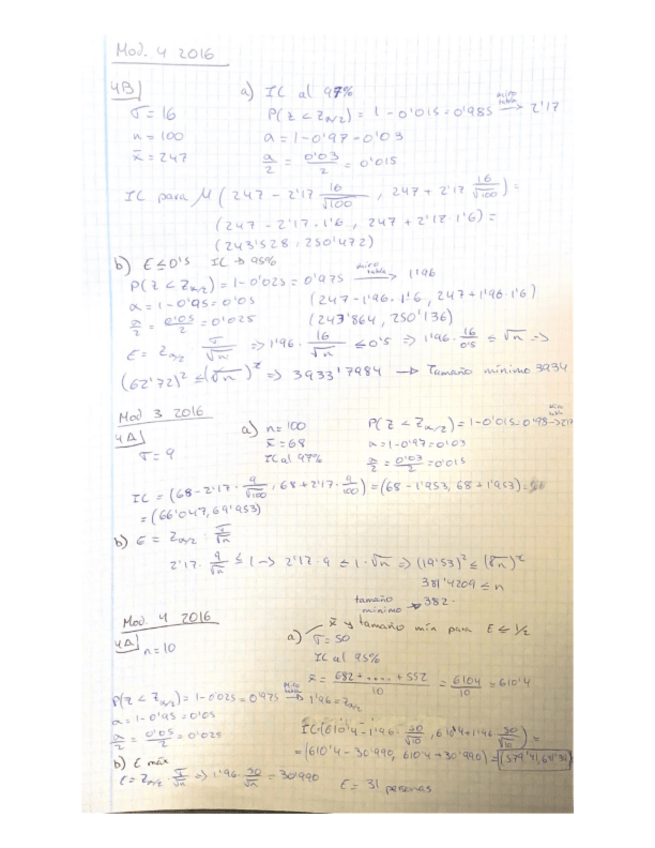 Mod. 4 2016
4B)
a) IC al 97%
σ = 16
P(z < Zα/2) = 1 - 0'015 = 0'985 miro tabla → 2'17
n = 100
α = 1 - 0'97 - 0'03
x̄ = 247
α/2 = 0'03/2 = 0'015
IC para μ (247 - 2'17 16/√100 , 247 + 2'17 16/√100) =
(247 - 2'17 · 1'6 , 247 + 2'17 · 1'6) =
(243'528 , 250'472)
b) E ≤ 0'5 IC → 95%
P(z < Zα/2) = 1 - 0'025 = 0'975 miro tabla → 1'96
α = 1 - 0'95 = 0'05 (247 - 1'96 · 1'6 , 247 + 1'96 · 1'6)
α/2 = 0'05/2 = 0'025 (243'864 , 250'136)
E = Zα/2 σ/√n => 1'96 · 16/√n ≤ 0'5 => 1'96 · 16/0'5 ≤ √n =>
(62'72)² ≤ (√n)² => 3933'7984 → Tamaño mínimo 3934
Mod 3 2016
4A)
a) n = 100
P(z < Zα/2) = 1 - 0'015 = 0'98 miro tabla →
σ = 9
x̄ = 68
α = 1 - 0'97 = 0'03
IC al 97%
α/2 = 0'03/2 = 0'015
IC = (68 - 2'17 · 9/√100 , 68 + 2'17 · 9/100) = (68 - 1'953, 68 + 1'953) =
= (66'047, 69'953)
b) E = Zα/2 · σ/√n
2'17 · 9/√n ≤ 1 → 2'17 · 9 ≤ 1 · √n => (19'53)² ≤ (√n)²
381'4209 ≤ n
tamaño mínimo → 382.
Mod. 4 2016
4A)
n = 10
a) x̄ y tamaño mín para E ≤ 1/2
σ = 50
IC al 95%
x̄ = 682 + .... + 552 / 10 = 6104/10 = 610'4
P(z < Zα/2) = 1 - 0'025 = 0'975 Miro tabla → 1'96 = Zα/2
α = 1 - 0'95 = 0'05
α/2 = 0'05/2 = 0'025
IC (610'4 - 1'96 · 50/√10 , 610'4 + 1'96 50/√10) =
= (610'4 - 30'990, 610'4 + 30'990) =
b) E máx
E = Zα/2 · σ/√n => 1'96 · 50/√n = 30'990
E = 31 personas